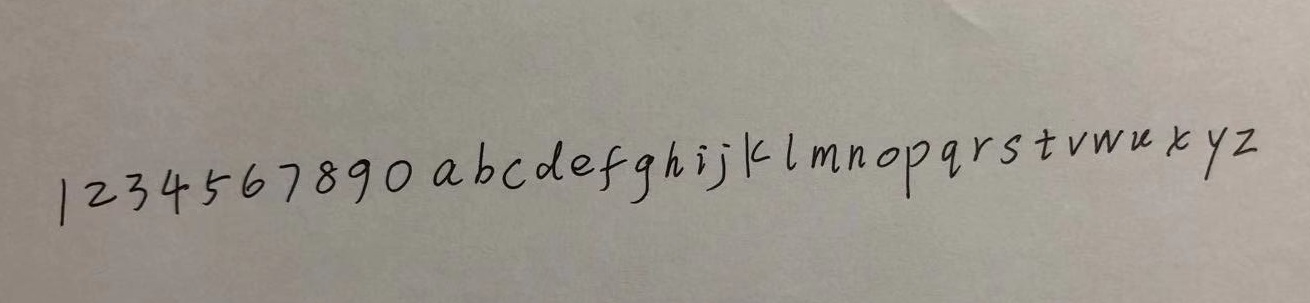 1234567890 abcdefghijklmnopqrstvwuxyz